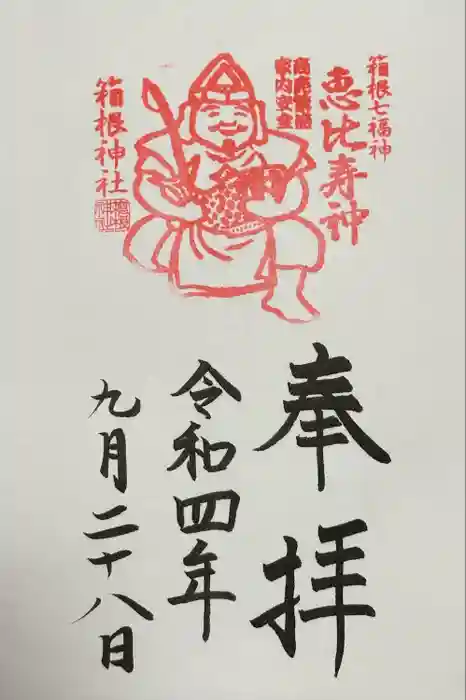 箱根七福神
恵比寿神
商売繁盛
家内安全
箱根神社
奉拝
令和四年
九月二十八日